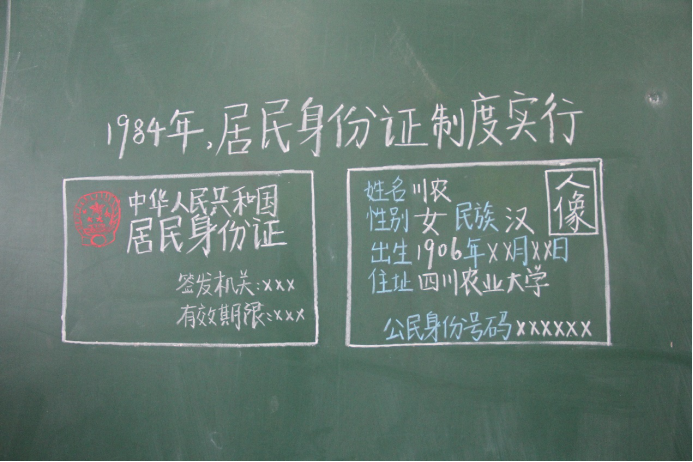 1984年,居民身份证制度实行
中华人民共和国
居民身份证
签发机关:xxx
有效期限:xxx
姓名 川农
性别 女 民族 汉
人像
出生 1906年xx月xx日
住址 四川农业大学
公民身份号码xxxxxx